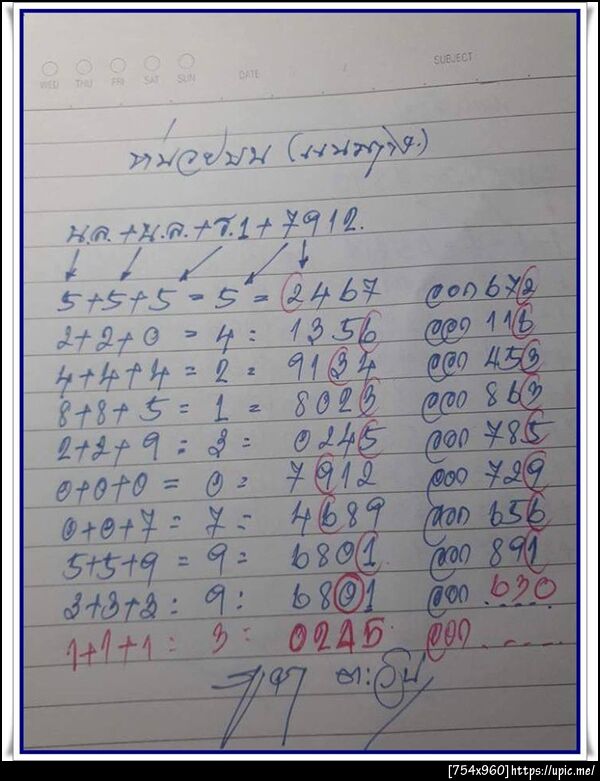 WED THU FRI SAT SUN DATE / / SUBJECT
หน่วยบน (แนวทาง.)
น.ล.+น.ล.+ธ.1+7912.
5+5+5=5=2467 ออก 672
2+2+0=4: 1356 ออก 116
4+4+4=2= 9134 ออก 453
8+8+5=1= 8023 ออก 863
2+2+9:3= 0245 ออก 785
0+0+0=0= 7912 ออก 729
0+0+7=7= 4689 ออก 656
5+5+9=9= 6801 ออก 891
3+3+3:9: 6801 ออก 630
1+1+1:3: 0245 ออก ....
[754x960]https://upic.me/